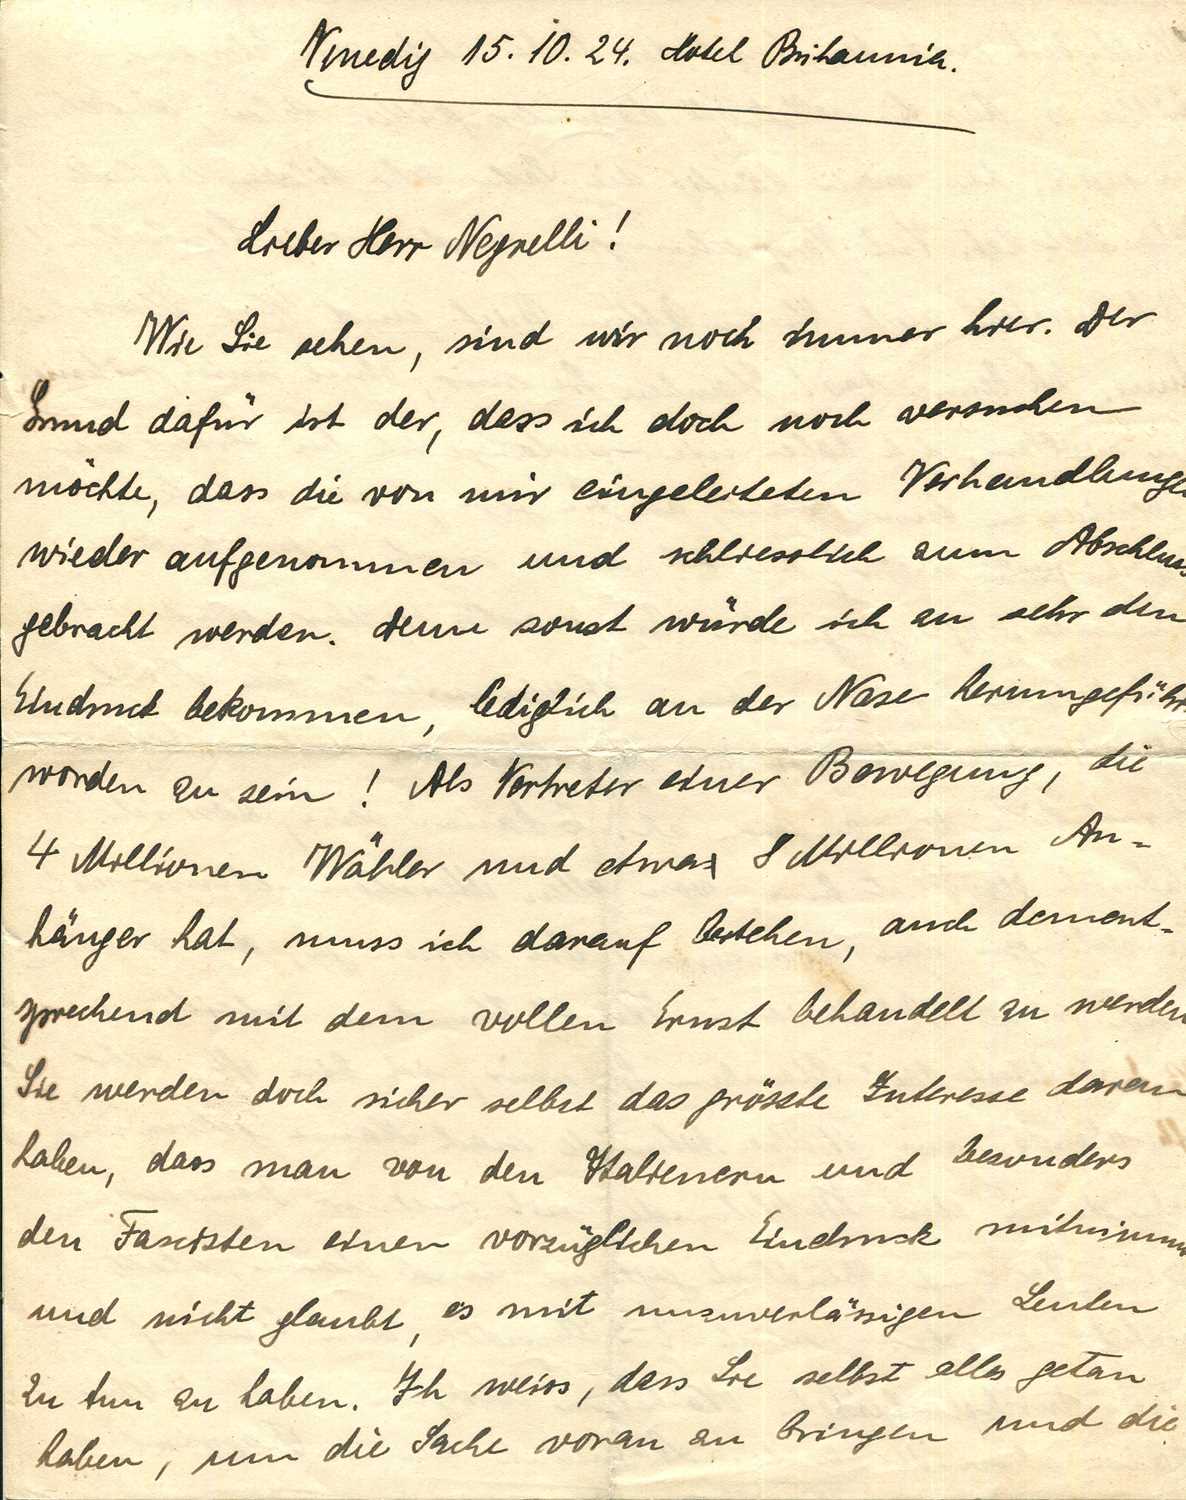 Venedig 15. 10. 24. Hotel Britannia.
Lieber Herr Negrelli!
Wie Sie sehen, sind wir noch immer hier. Der
Grund dafür ist der, dass ich doch noch versuchen
möchte, dass die von mir eingeleiteten Verhandlungen
wieder aufgenommen und schliesslich zum Abschluss
gebracht werden. Denn sonst würde ich zu sehr den
Eindruck bekommen, lediglich an der Nase herumgeführt
worden zu sein! Als Vertreter einer Bewegung, die
4 Millionen Wähler und etwa 8 Millionen An-
hänger hat, muss ich darauf bestehen, auch dement-
sprechend mit dem vollen Ernst behandelt zu werden
Sie werden doch sicher selbst das grösste Interesse daran
haben, dass man von den Italienern und besonders
den Fascisten einen vorzüglichen Eindruck mitnimmt
und nicht glaubt, es mit unzuverlässigen Leuten
zu tun zu haben. Ich weiss, dass Sie selbst alles getan
haben, um die Sache voran zu bringen und die